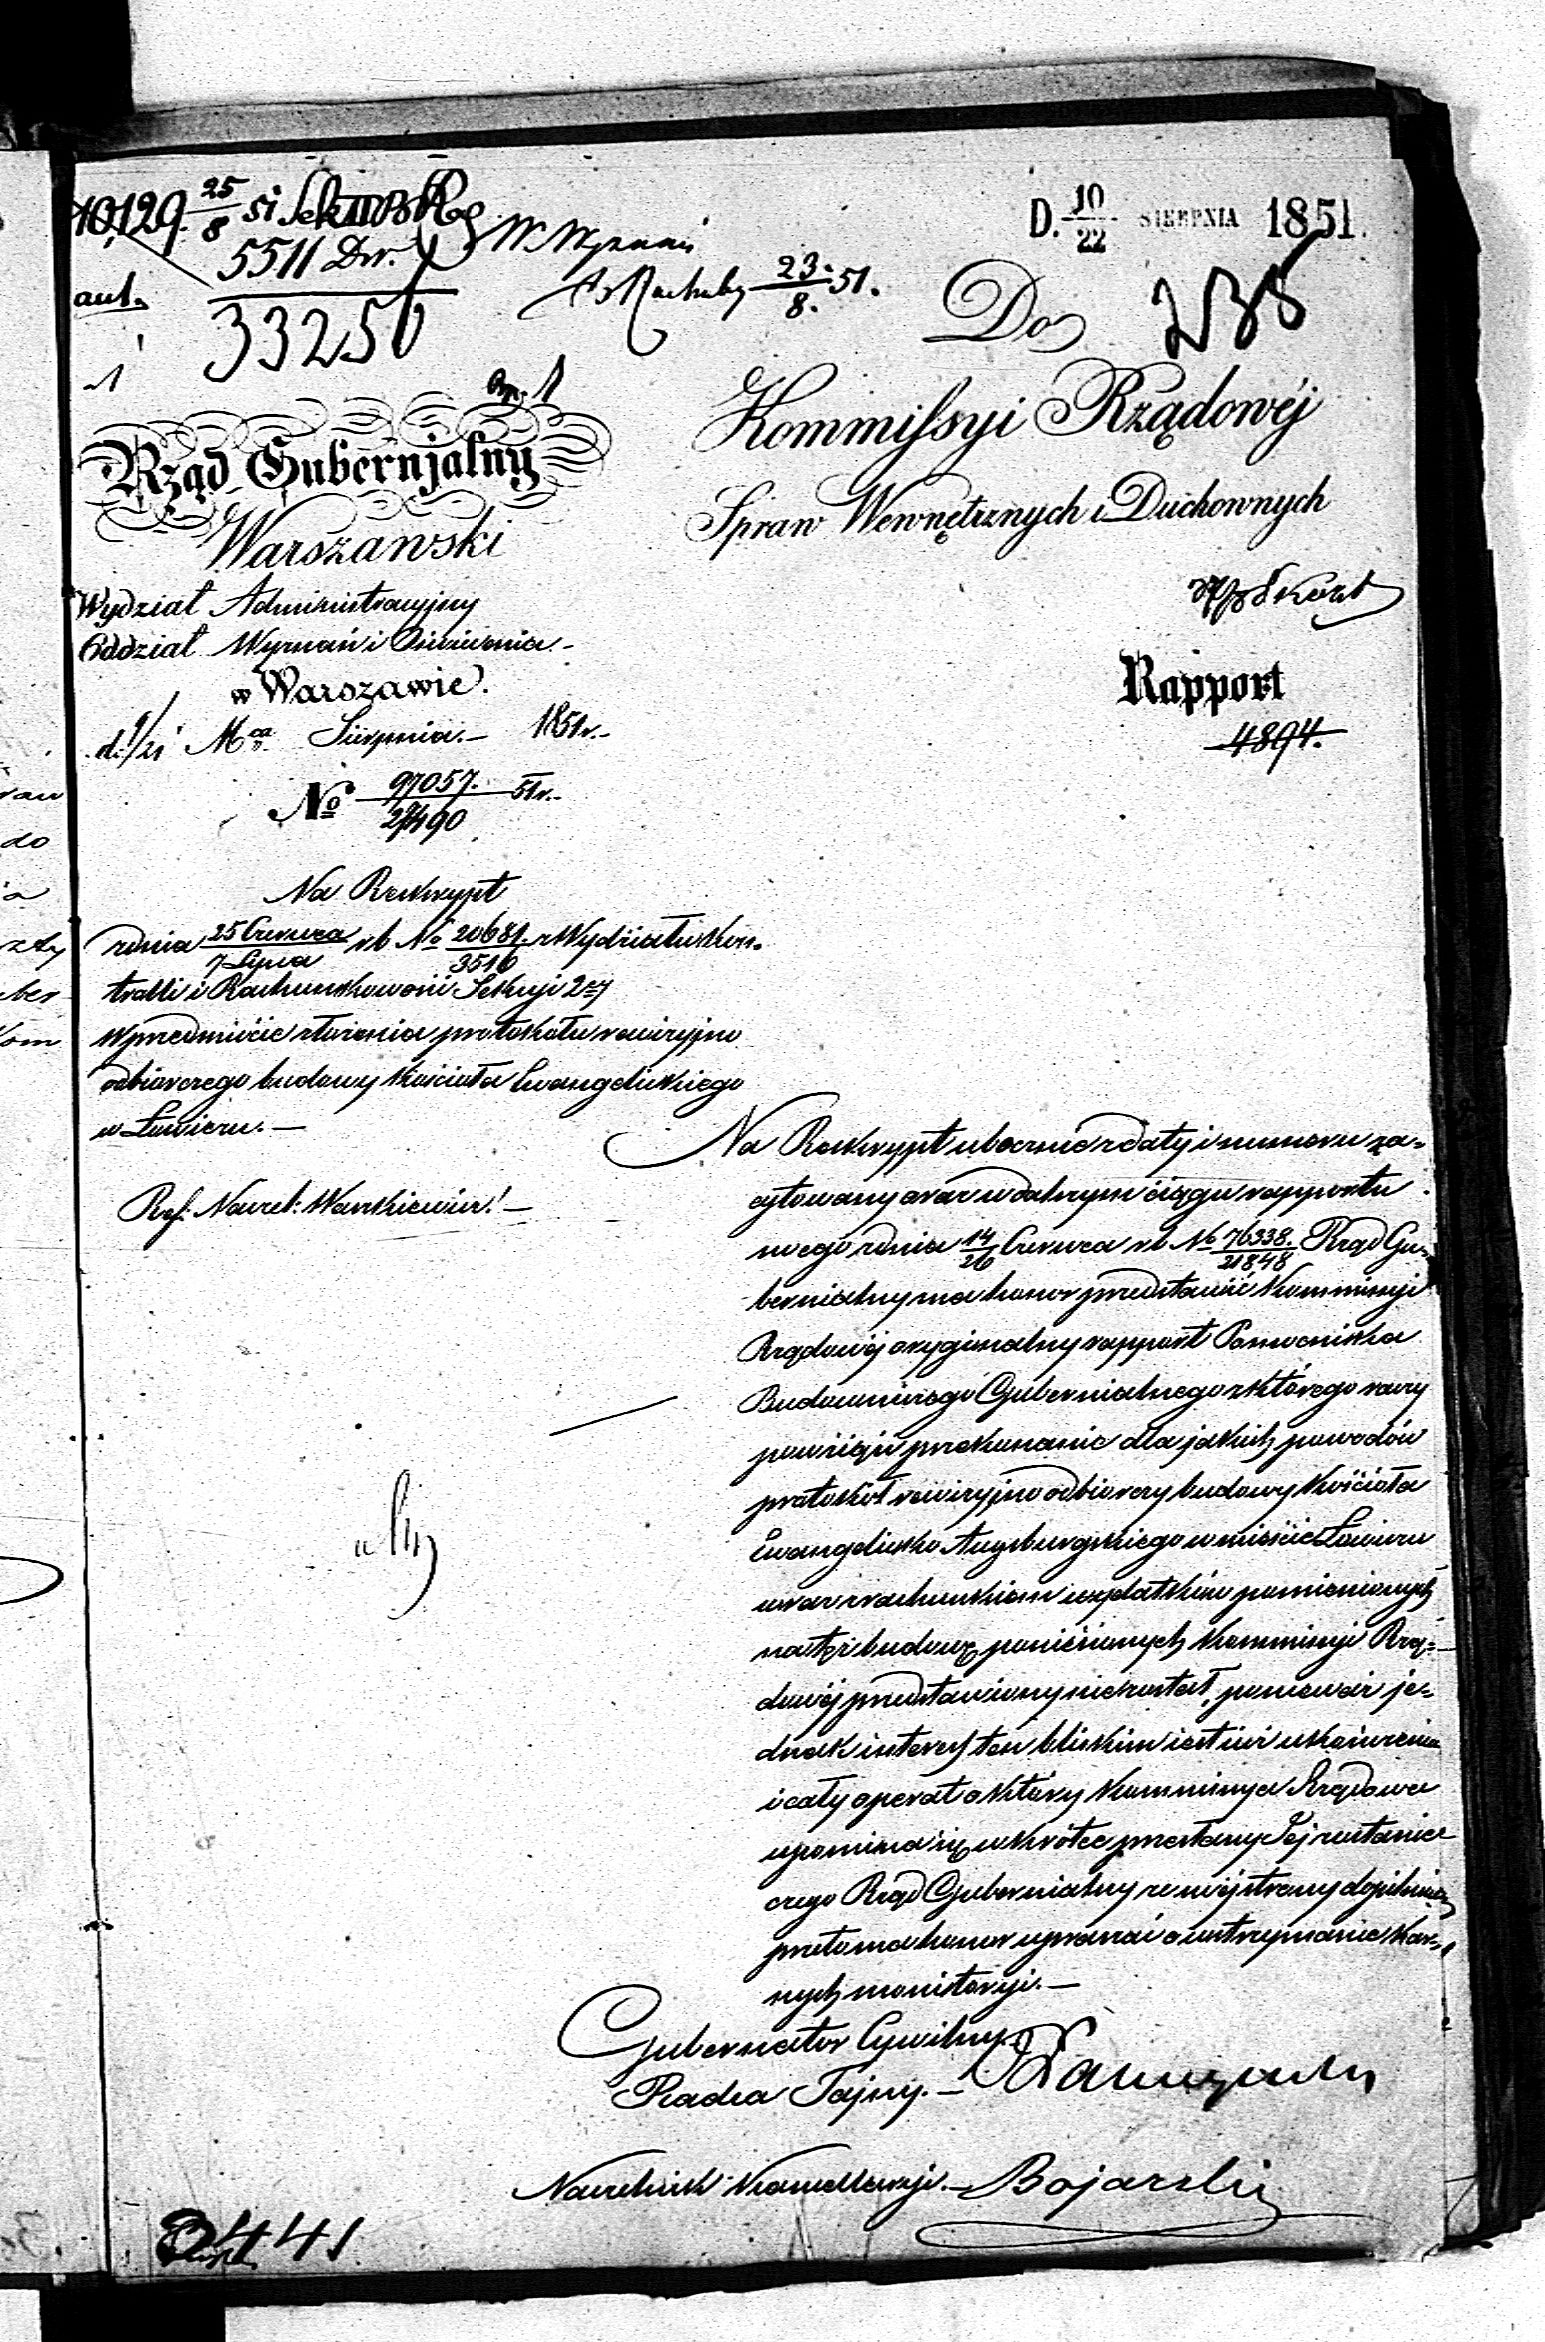 10,129 25/8 si
5511 Dr.
33256
aut.
1
W. Wyznań
23/8. 51.
D. 10/22 SIERPNIA 1851.
238
Do
Kommissyi Rządowéj
Spraw Wewnętrznych i Duchownych
Rząd Gubernjalny
Warszawski
Wydział Administracyjny
Oddział Wyznań i Oświecenia.
w Warszawie.
d. 9/21 Mca Sierpnia. 1851 r.
No 97057./27490 51 r.
Rapport
4894.
Na Reskrypt
z dnia 25 Czerwca/7 Lipca r.b. No 20681./3516 z Wydziału Kon-
trolli i Rachunkowości Sekcyi 2ej
w przedmiocie złożenia protokółu rewizyjno
odbiorczego budowy Kościoła Ewangelickiego
w Łowiczu.
Ref. Naczel:
Na Reskrypt ubocznie z daty i numeru za-
cytowany oraz w dalszym ciągu rapportu
swego z dnia 14/26 Czerwca r.b. No 76338./21848 Rząd Gu-
bernialny ma honor przedstawić Kommissyi
Rządowéj oryginalny rapport Pomocnika
Budowniczego Gubernialnego z którego raczy
powziąść przekonanie dla jakich powodów
protokół rewizyjno odbiorczy budowy Kościoła
Ewangelicko Augsburgskiego w mieście Łowiczu
wraz z rachunkiem wydatków pomienionych
na tęż budowę poniesionych Kommissyi Rzą-
dowéj przedstawiony nie został, ponieważ je-
dnak interes ten bliskim jest już ukończenia
i cały operat o który Kommissya Rządowa
upomina się wkrótce przesłany Jej zostanie
czego Rząd Gubernialny ze swéj strony dopilnuje
przeto ma honor upraszać o wstrzymanie kar-
nych monitoryi.
Gubernator Cywilny
Radca Tajny.
Naczelnik Kancellaryi. Bojarski
2441